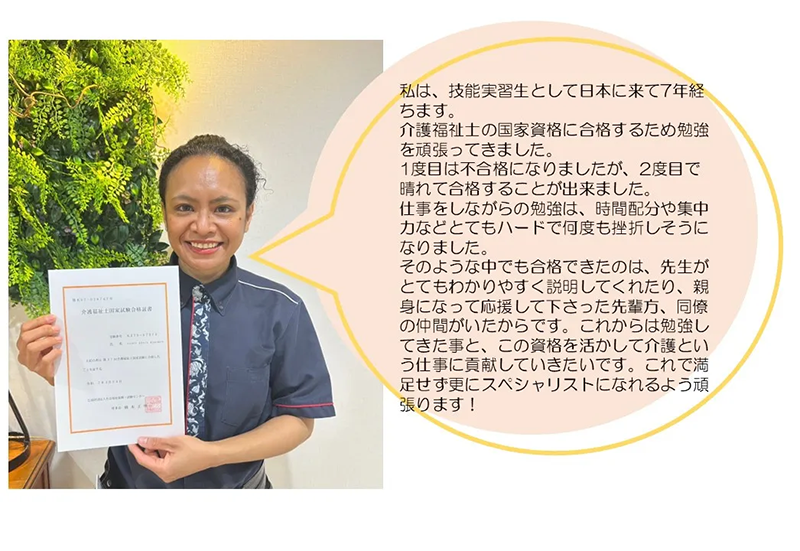 介護福祉士国家試験合格証書
私は、技能実習生として日本に来て7年経
ちます。
介護福祉士の国家資格に合格するため勉強
を頑張ってきました。
1度目は不合格になりましたが、2度目で
晴れて合格することが出来ました。
仕事をしながらの勉強は、時間配分や集中
力などとてもハードで何度も挫折しそうに
なりました。
そのような中でも合格できたのは、先生が
とてもわかりやすく説明してくれたり、親
身になって応援して下さった先輩方、同僚
の仲間がいたからです。これからは勉強し
てきた事と、この資格を活かして介護とい
う仕事に貢献していきたいです。これで満
足せず更にスペシャリストになれるよう頑
張ります！